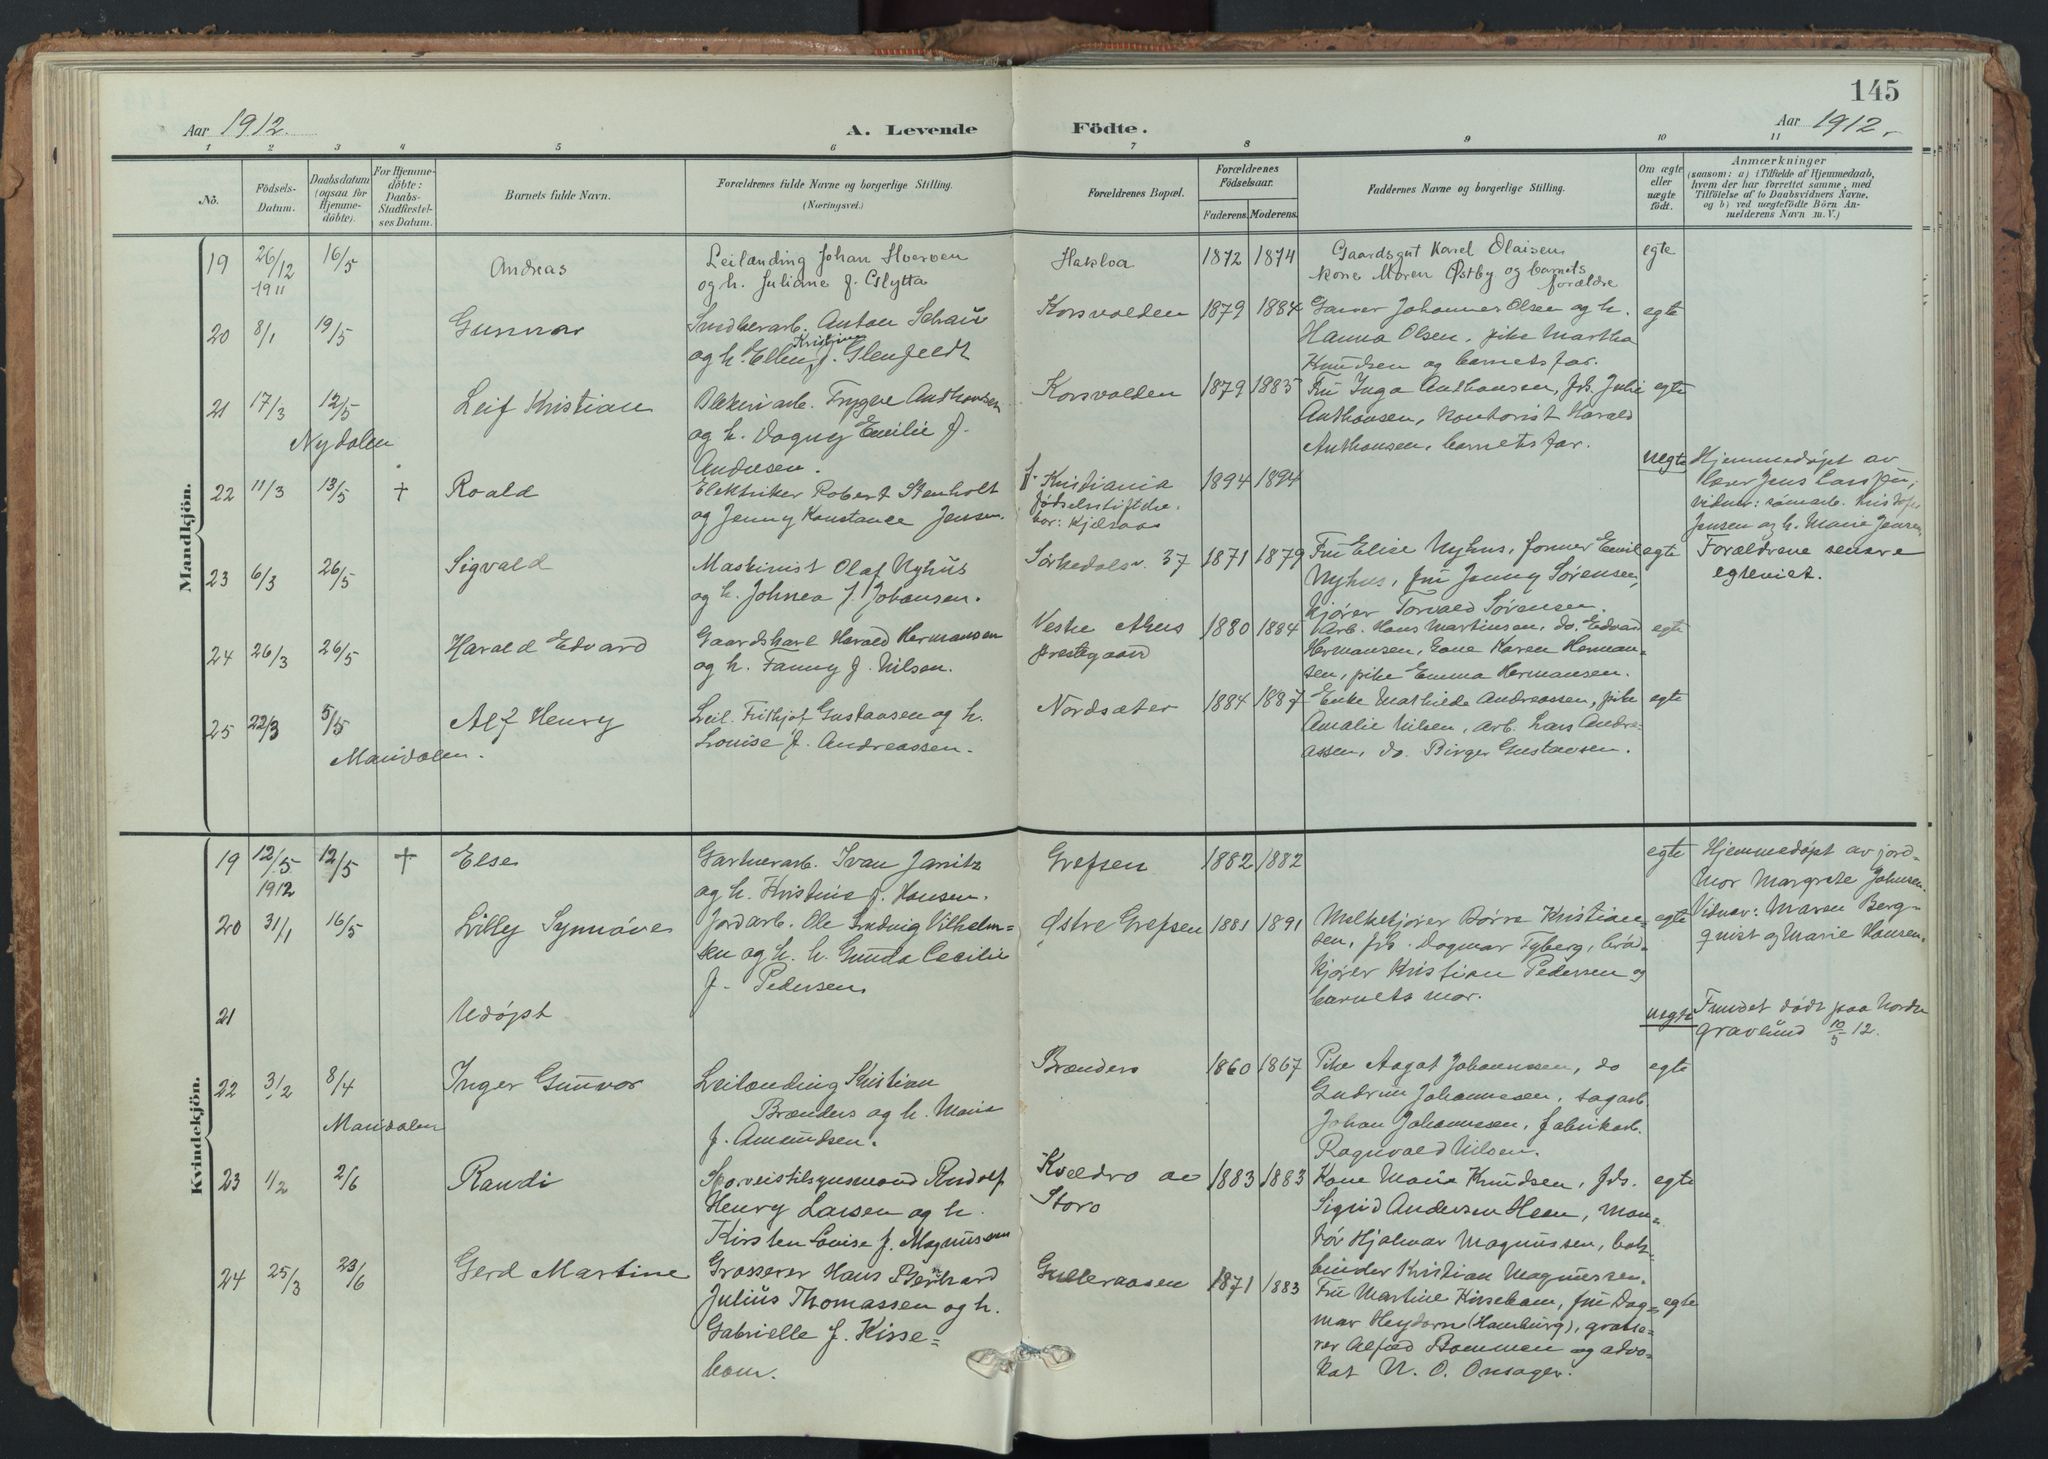 145
Aar 1912.
A. Levende Födte.
Aar 1912.
1 2 3 4 5 6 7 8 9 10 11
No.
Födsels-Datum.
Daabsdatum (ogsaa for Hjemme-döbte).
For Hjemme-döbte: Daabs-Stadfæstel-ses Datum.
Barnets fulde Navn.
Forældrenes fulde Navne og borgerlige Stilling.
(Næringsvei.)
Forældrenes Bopæl.
Forældrenes Födselsaar.
Faderens. Moderens.
Faddernes Navne og borgerlige Stilling.
Om ægte eller uægte födt.
Anmærkninger
(saasom: a) i Tilfælde af Hjemmedaab,
hvem der har forrettet samme, med
Tilföielse af to Daabsvidners Navne,
og b) ved uægtefödte Börn An-
melderens Navn m. V.)
Mandkjön.
19 26/12 1911 16/5 Andreas
Leilænding Johan
og h. Juliane f.
Hakloa 1872 1874
Gaardsgut Karel Olaisen
kone Maren Østby og barnets
forældre
egte
20 8/1 19/5 Gunnar
Anton
og h. Ellen Kristine f. Glenfeldt
Korsvolden 1879 1884
Garver Johannes Olsen og h.
Hanna Olsen, pike Martha
Knudsen og barnets far.
egte
21 17/3 12/5 Nydalen Leif Kristian
Trygve Anthonsen
og h. Dagny Emilie f.
Andresen.
Korsvolden 1879 1885
Fru Inga Anthonsen, frk. Julie
Anthonsen, kontorist Harald
Anthonsen, barnets far.
egte
22 11/3 13/5 † Roald
Elektriker Robert Stenholt
og Jenny Konstance Jensen.
f. Kristiania
fødselsstiftelse.
bor: Kjelsaas
1894 1894
uegte
Hjemmedøpt av
Jens
vidner: Kristofer
Jensen og h. Marie Jensen
Forældrene senere
egteviet.
23 6/3 26/5 Sigvald
Maskinist Olaf Nyhus
og h. Johnea f. Johansen.
Sørkedalsv. 37 1871 1879
Fru Elise Nyhus, former Emil
Nyhus, fru Jenny Sørensen,
kjører Torvald Sørensen.
egte
24 26/3 26/5 Harald Edvard
Gaardskarl Harald Hermansen
og h. Fanny f. Nilsen.
Vestre Aker
prestegaard
1880 1884
Arb. Hans Martinsen, do. Edvard
Hermansen, kone Karen Herman-
sen, pike Emma Hermansen.
egte
25 22/3 5/5 Maridalen. Alf Henry
Leil. Frithjof Gustavsen og h.
Lovise f. Andreassen.
Nordsæter 1884 1887
Enke Mathilde Andreassen, pike
Amalie Nilsen, arb. Lars Andre-
assen, do. Birger Gustavsen.
egte
Kvindekjön.
19 12/5 1912 12/5 † Else
Gartnerarb. Ivan
og h. Kristine f. Hansen.
Grefsen 1882 1882
egte
Hjemmedøpt av jord-
mor Margrete Johnsen.
Vidner: Maren Berg-
quist og Marie Hansen.
20 31/1 16/5 Lilly Synnöve
Jordarb. Ole Ludvig Vilhelm-
sen og h. h. Gunda Cecilie
f. Pedersen.
Østre Grefsen 1881 1891
Melkekjører Børre Kristian-
sen, frk. Dagmar Tyberg, brød-
kjører Kristian Pedersen og
barnets mor.
egte
21 Udøpt
uegte
Fundet dødt paa Nordre
gravlund 10/5 12.
22 3/2 8/4 Maridalen Inger Gunvor
Leilænding Kristian
Brænders og h. Marie
f. Amundsen.
Brænders 1860 1867
Pike Aagot Johannessen, do
Gudrun Johannessen, sagarb.
Johan Johannessen, fabrikarb.
Ragnvald Nilsen.
egte
23 1/2 2/6 Randi
Sporveistilsynsmand Rudolf
Henry Larsen og h.
Kirsten Lovise f. Magnussen
Kveldro av
Storo
1883 1883
Kone Maria Knudsen, frk.
Sigrid Andersen Heen, mon-
tør Hjalmar Magnussen, bok-
binder Kristian Magnussen.
egte
24 25/3 23/6 Gerd Martine
Grosserer Hans Bernhard
Julius Thomassen og h.
Gabrielle f. Kisse-
bom.
Gulleraasen 1871 1883
Fru Martine Kissebom, fru Dag-
mar Heydorn (Hamburg), grosse-
rer Alfred Bommen og advo-
kat N. O. Onsager.
egte